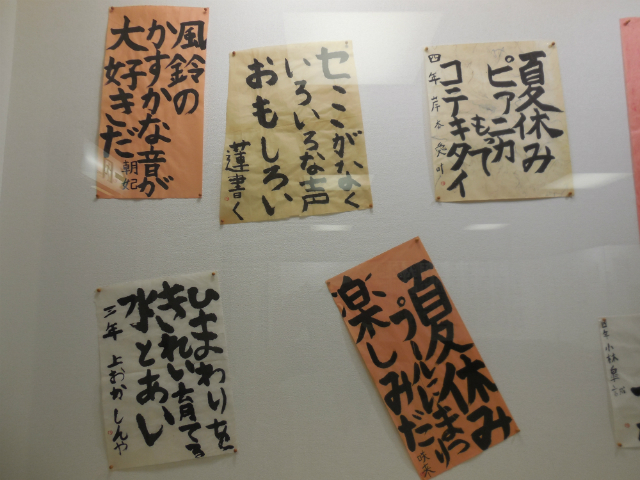 風鈴の
かすかな音が
大好きだ
朝妃
セミがなく
いろいろな声
おもしろい
蓮書く
夏休み
ピアニカもって
コテキタイ
四年 岸本
ひまわりを
きれい育てる
水とあい
三年 上おか しんや
夏休み
プールにまつり
楽しみだ
咲来
小林